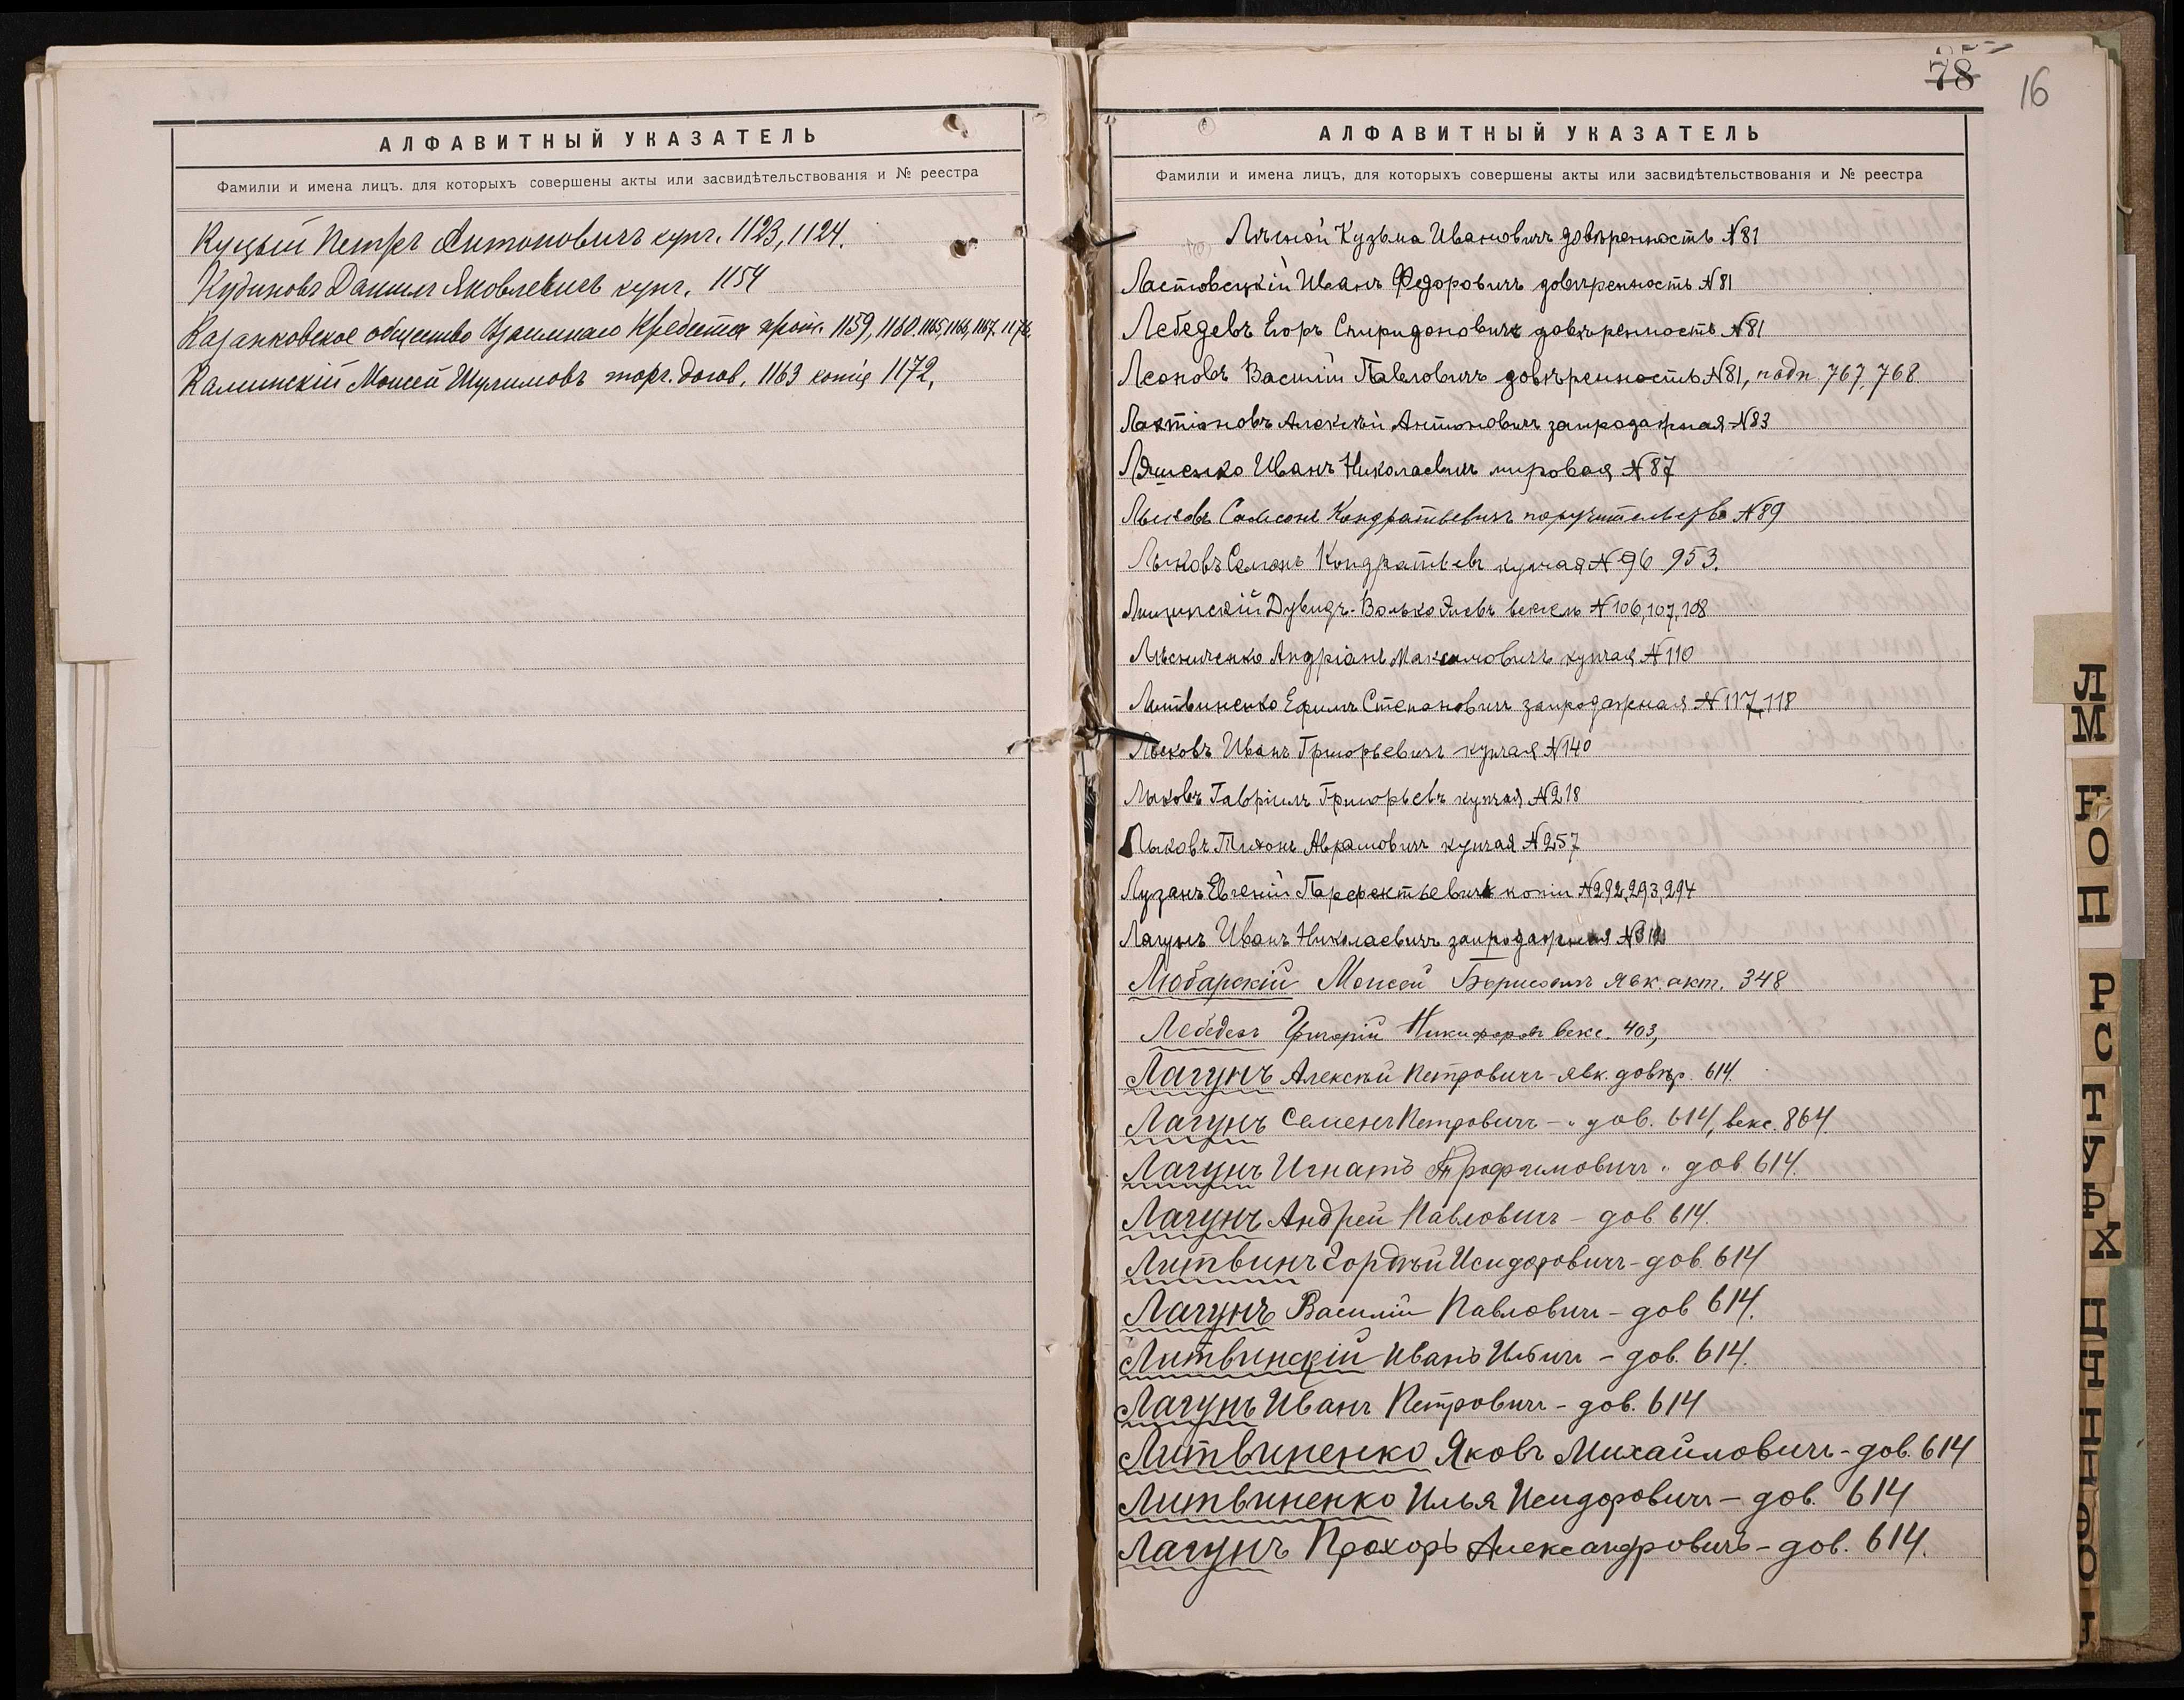 АЛФАВИТНЫЙ УКАЗАТЕЛЬ
Фамиліи и имена лицъ. для которыхъ совершены акты или засвидѣтельствованія и № реестра
Куцый Петръ Антоновичъ купч. 1123, 1124.
Кудиновъ Даніилъ Яковлевичъ купч. 1154
Казанковское общество Взаимнаго Кредита прот. 1159, 1160. 1165, 1166, 1167. 1174.
Калинскій Моисей Шулимовъ торг. догов. 1163 копія 1172,
78
16
АЛФАВИТНЫЙ УКАЗАТЕЛЬ
Фамиліи и имена лицъ, для которыхъ совершены акты или засвидѣтельствованія и № реестра
Лѣсной Кузьма Ивановичъ довѣренность №81
Ластовецкій Иванъ Федоровичъ довѣренность №81
Лебедевъ Егоръ Спиридоновичъ довѣренность №81
Леоновъ Василій Павловичъ довѣренность №81, подп. 767, 768.
Лактіоновъ Алексѣй Антоновичъ запродажная №83
Ляшенко Иванъ Николаевичъ мировая №87
Лысовъ Самсонъ Кондратьевичъ поручительство №89
Лыковъ Кондратьевъ купчая №96 953.
Дувидъ-Волько вексель №106, 107, 108
Лѣсниченко Андріанъ Максимовичъ купчая №110
Литвиненко Ефимъ Степановичъ запродажная №117, 118
Лысковъ Иванъ Григорьевичъ купчая №140
Лыковъ Гавріилъ Григорьевъ купчая №218
Лыковъ Тихонъ Абрамовичъ купчая №257
Лузанъ Евгеній Парфентьевичъ копіи №292, 293, 294
Лагунъ Иванъ Николаевичъ запродажная
Любарскій Моисей Борисовичъ явк. акт. 348
Лебедевъ Григорій Никифоровъ векс. 403,
Лагунъ Алексѣй Петровичъ - явк. довѣр. 614.
Лагунъ Семенъ Петровичъ - " дов. 614, векс. 864.
Лагунъ Игнатъ Трофимовичъ " дов 614.
Лагунъ Андрей Павловичъ - дов 614.
Литвинъ Гордѣй Исидоровичъ - дов. 614
Лагунъ Василій Павловичъ - дов 614.
Литвинскій Иванъ Ильичъ - дов. 614.
Лагунъ Иванъ Петровичъ - дов. 614
Литвиненко Яковъ Михайловичъ - дов. 614
Литвиненко Илья Исидоровичъ - дов. 614
Лагунъ Прохоръ Александровичъ - дов. 614.
Л
М
Н
О
П
Р
С
Т
У
Ф
Х